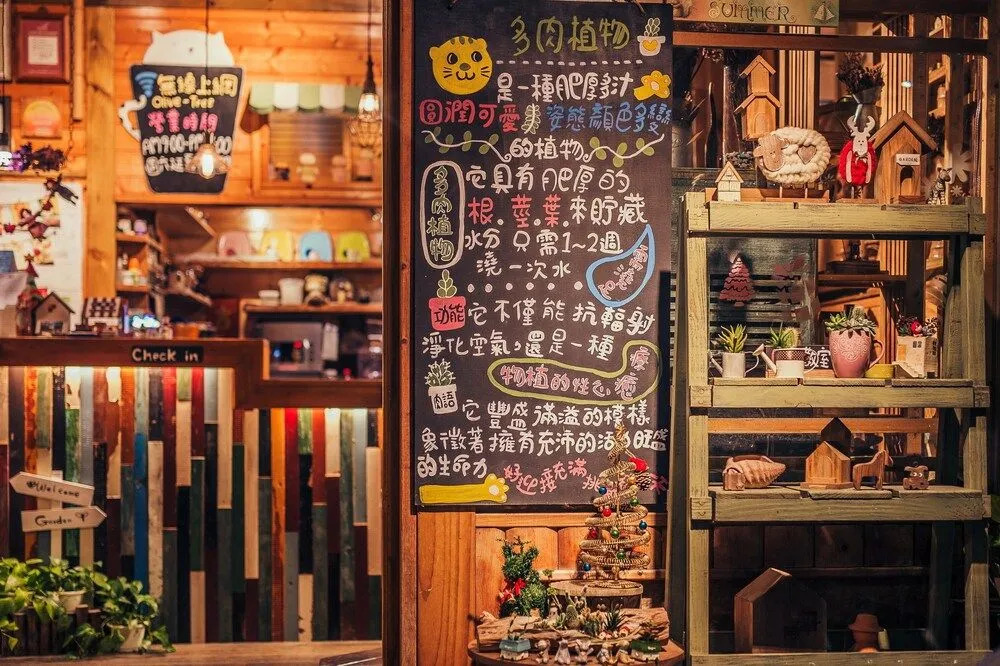 無線上網
Olive-Tree
營業時間
Check in
Welcome
Garden
多肉植物
是一種肥厚多汁
圓潤可愛 姿態顏色多變
的植物
多肉植物
它具有肥厚的
根.莖.葉來貯藏
水分 只需1~2週
澆一次水
功能
它不僅能抗輻射
淨化空氣,還是一種
療
物植的性心癒
肉語
它豐盛滿溢的模樣
象徵著擁有充沛的活 旺盛
的生命力
SUMMER
GARDEN